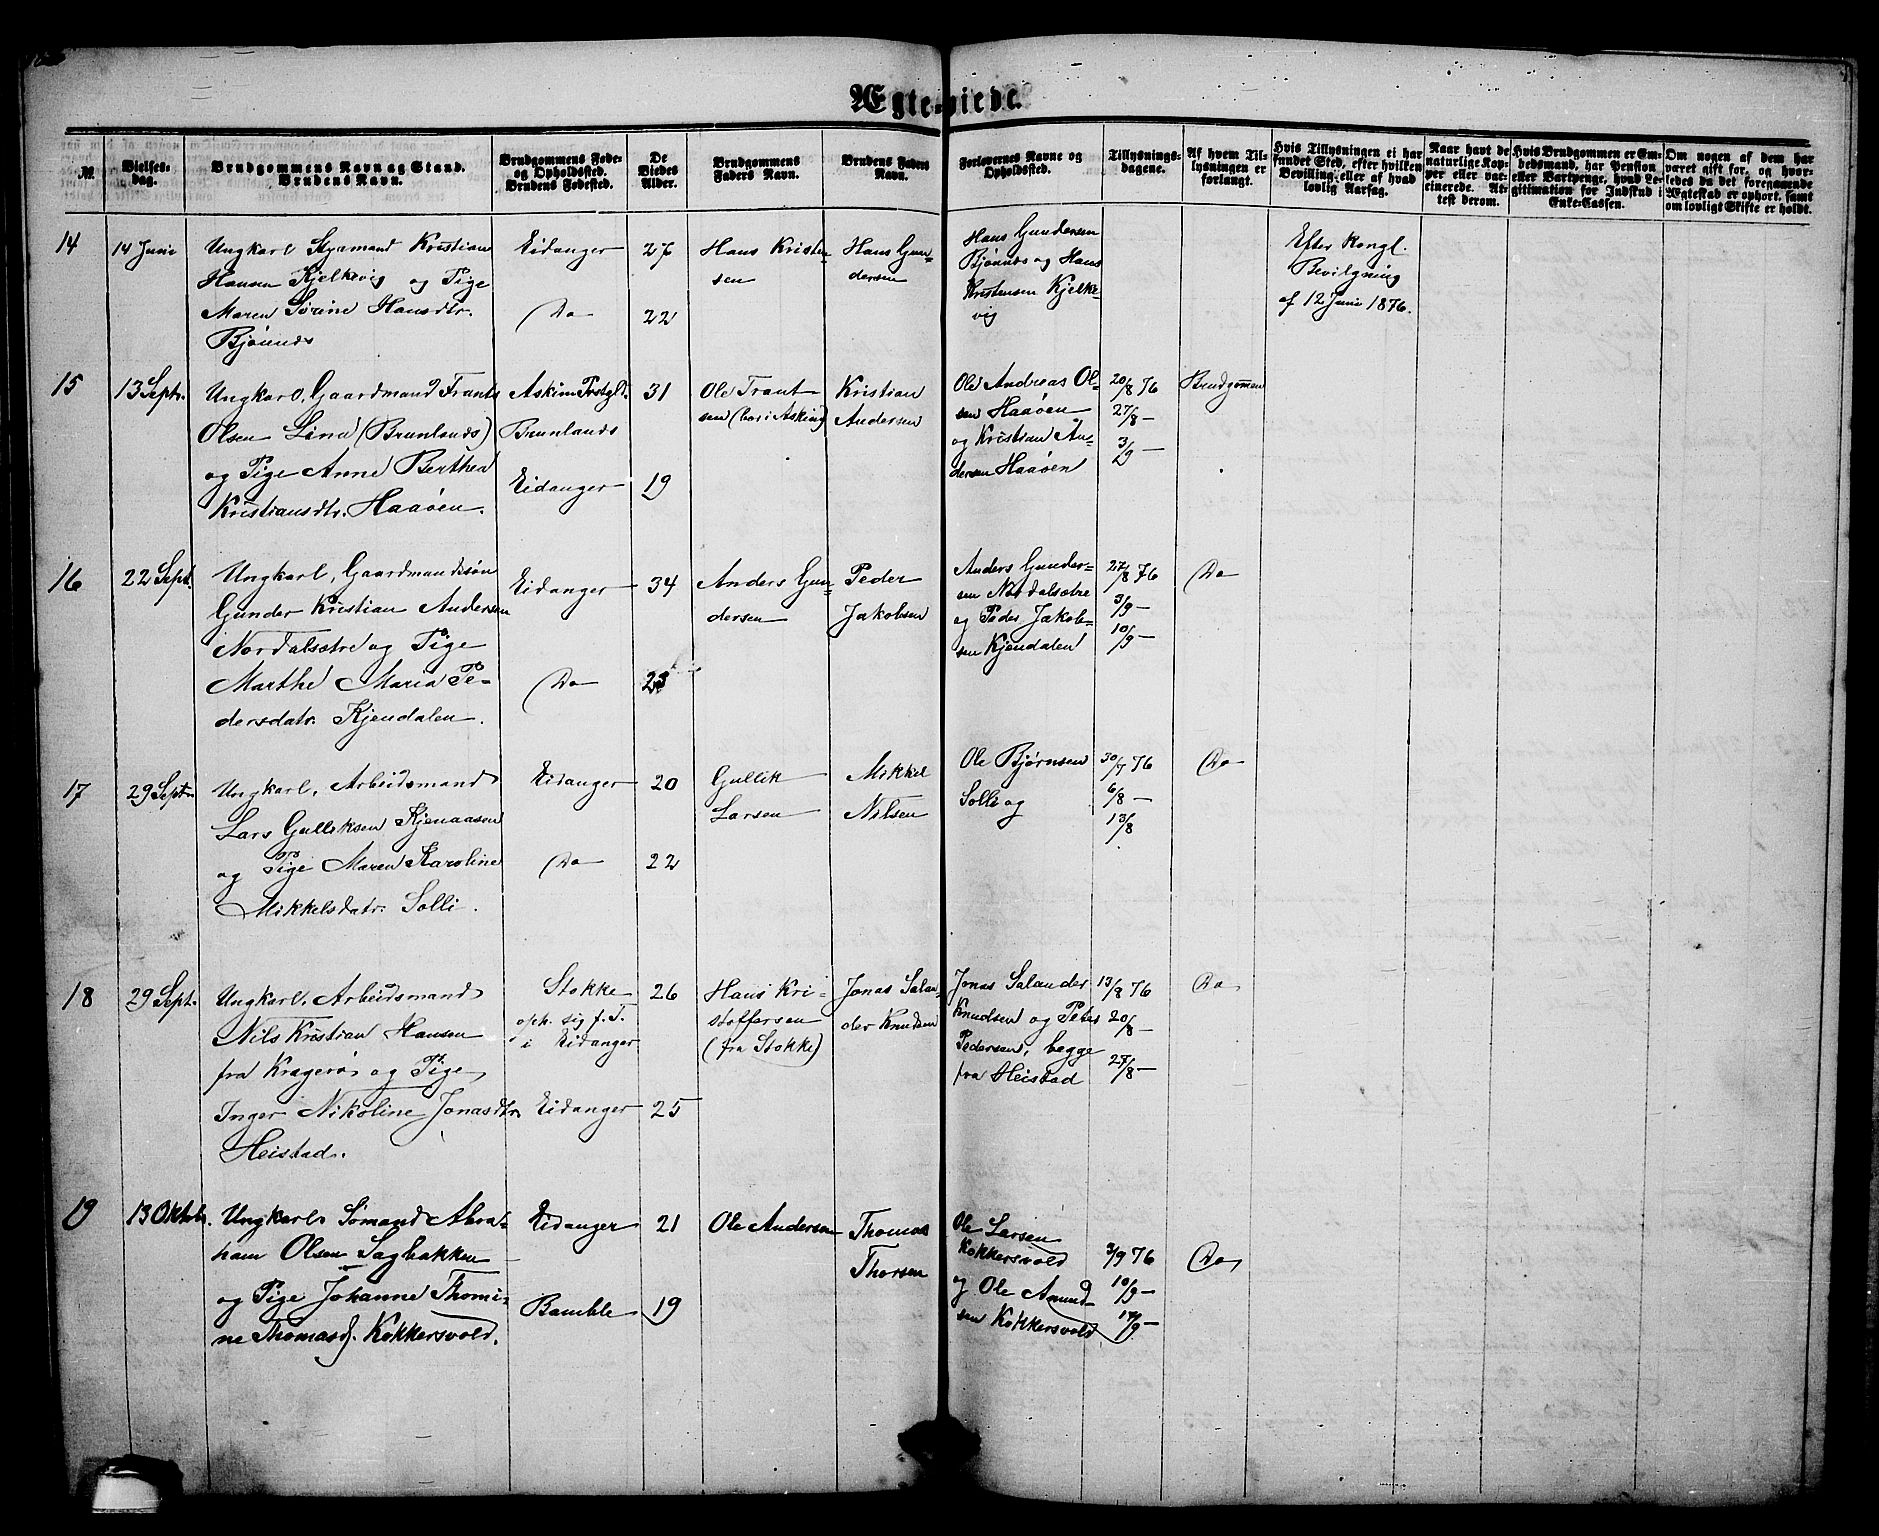 Ægte-viede.
№.
Vielses-
dag.
Brudgommens Navn og Stand.
Brudens Navn.
Brudgommens Føde-
og Opholdssted.
Brudens Fødested.
De
Viedes
Alder.
Brudgommens
Faders Navn.
Brudens Faders
Navn.
Forlovernes Navne og
Opholdssted.
Tillysnings-
dagene.
Af hvem Til-
lysningen er
forlangt.
Hvis Tillysningen ei har
fundet Sted, efter hvilken
Bevilling, eller af hvad
lovlig Aarsag.
Naar havt de
naturlige Kop-
per eller vac-
cinerede. At-
test derom.
Hvis Brudgommen er Em-
bedsmand, har Pension
eller Vartpenge, hvad Le-
gitimation for Indskud i
Enke-Cassen.
Om nogen af dem har
været gift før, og hvor-
ledes da det foregaaende
Ægteskab er ophørt, samt
om lovligt Skifte er holdt.
14
14 Juni
Ungkarl Styrmand Kristian
Hansen Kjelkevig og Pige
Maren Sørine Hansdtr.
Bjønnes
Eidanger
Do
27
22
Hans Kristen-
sen
Hans Gun-
dersen
Hans Gundersen
Bjønnes og Hans
Kristensen Kjelke-
vig
Efter Kongl.
Bevilgning
af 12 Juni 1876.
15
13 Sept.
Ungkarl, Gaardmand Frants
Olsen (Brunlands)
og Pige Anne Berthea
Kristiansdtr. Haaøen.
Askim Prstgld.
Brunlands
Eidanger
31
19
Ole Frant-
sen (bor i Asking)
Kristian
Andersen
Ole Andreas Ol-
sen Haaøen
og Kristian An-
dersen Haaøen
20/8 76
27/8 —
3/9 —
Brudgommen
16
22 Sept.
Ungkarl, Gaardmandssøn
Gunder Kristian Andersen
Nordalsetre og Pige
Marthe Maria Pe-
dersdatr. Kjendalen.
Eidanger
Do
34
23
Anders Gun-
dersen
Peder
Jakobsen
Anders Gunder-
sen Nordalsetre
og Peder Jakob-
sen Kjendalen
27/8 76
3/9 —
10/9 —
Do
17
29 Sept.
Ungkarl, Arbeidsmand
Lars Gulliksen Kjenaasen
og Pige Maren Karoline
Mikkelsdatr. Solli.
Eidanger
Do
20
22
Gullik
Larsen
Mikkel
Nilsen
Ole Bjørnsen
Solli og
30/7 76
6/8 —
13/8
Do
18
29 Sept.
Ungkarl, Arbeidsmand
Nils Kristian Hansen
fra Kragerø og Pige
Inger Nikoline Jonasdtr.
Heistad.
Stokke
oph. sig f. T.
i Eidanger
Eidanger
26
25
Hans Kri-
stoffersen
(fra Stokke)
Jonas Salan-
der Knudsen
Jonas Salander
Knudsen og Peter
Pedersen, begge
fra Heistad
13/8 76
20/8 —
27/8 —
Do
19
13 Oktob.
Ungkarl Sømand Abra-
ham Olsen Sagbakken
og Pige Johanne Thomi-
ne Thomasd. Kokkersvold.
Eidanger
Bamble
21
19
Ole Andersen
Thomas
Thorsen
Ole Larsen
Kokkersvold
og Ole Amund-
sen Kokkersvold
3/9 76
10/9 —
17/9 —
Do